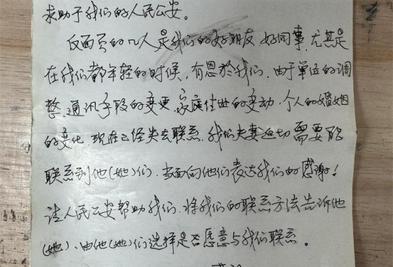 求助于我们的人民公安。
反面页的几人是我们的好朋友 好同事，尤其是
在我们都年轻的时候，有恩于我们，由于单位的调
整，通讯手段的变更，家庭住址的变动，个人的婚姻
的变化，现在已经失去联系，我们夫妻迫切需要能
联系到他(她)们，当面向他们表达我们的感谢！
请人民公安帮助我们，将我们的联系方法告诉他
(她)，由他(她)们选择是否愿意与我们联系。